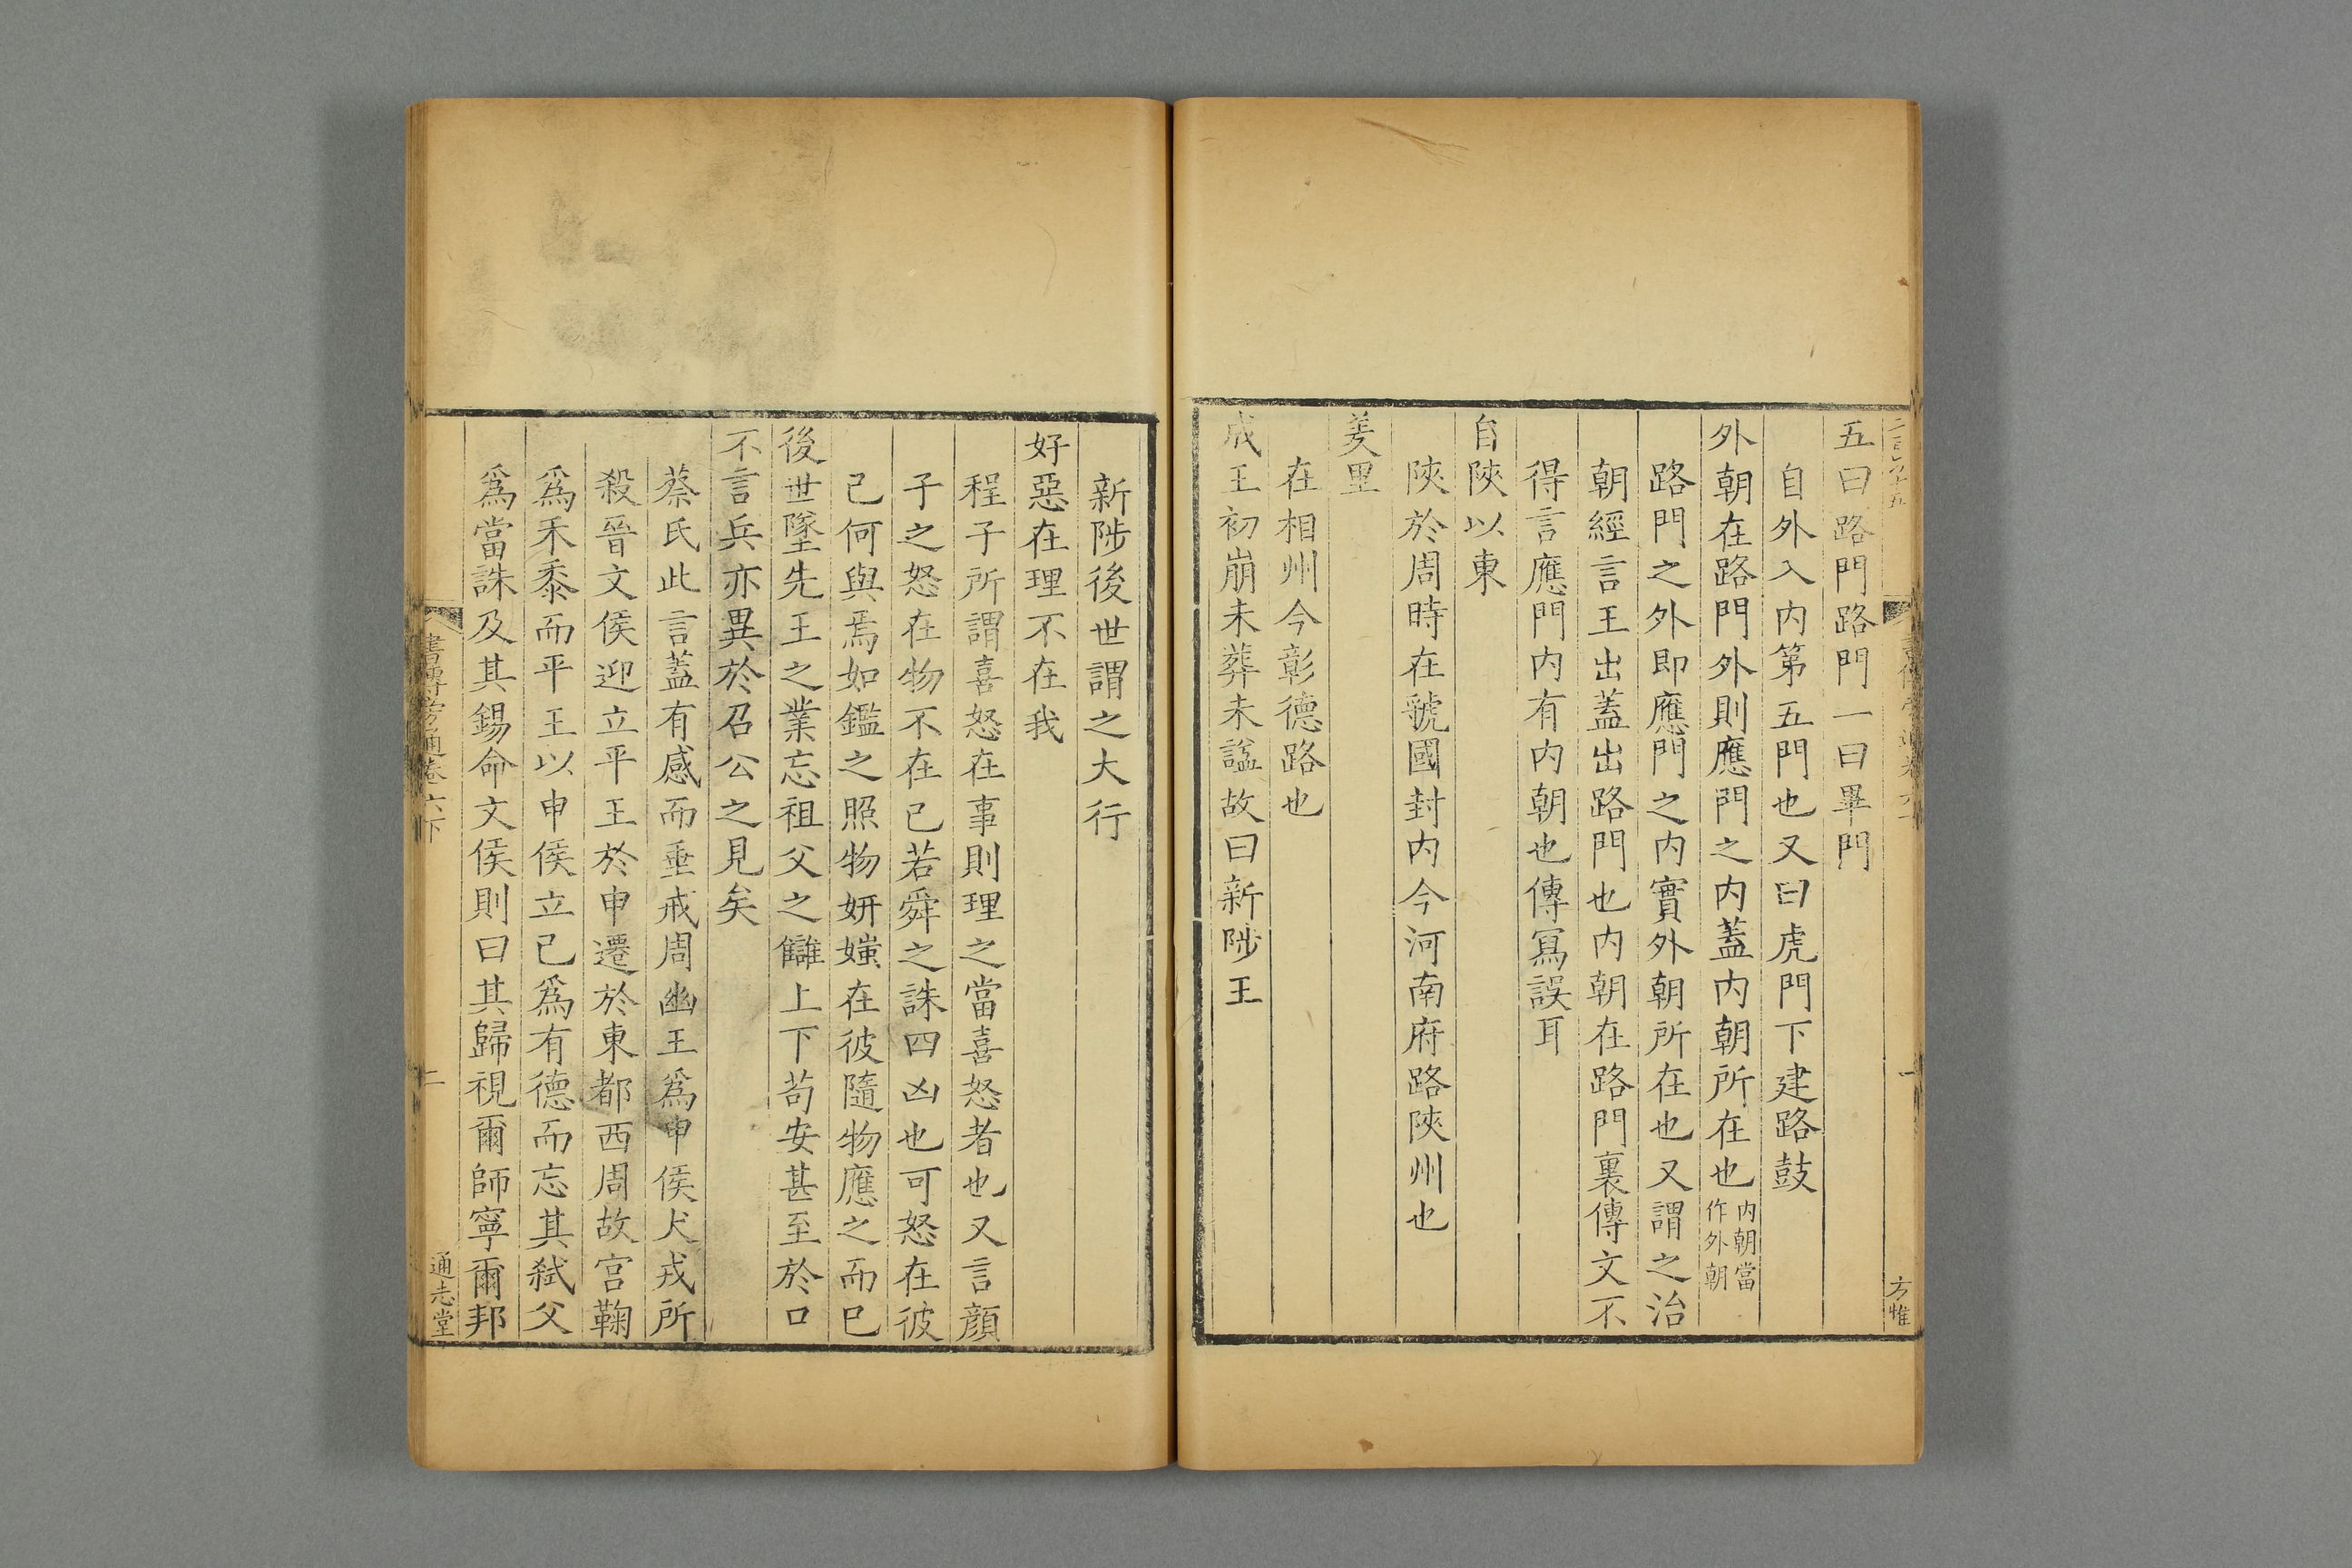 五曰路門路門一曰畢門
自外入内第五門也又曰虎門下建路鼓
外朝在路門外則應門之内蓋内朝所在也内朝當作外朝
路門之外即應門之内實外朝所在也又謂之治
朝經言王出蓋出路門也内朝在路門裏傳文不
得言應門内有内朝也傳寫誤耳
自陜以東
陜於周時在虢國封内今河南府路陜州也
羑里
在相州今彰德路也
成王初崩未葬未諡故曰新陟王
方惟
新陟後世謂之大行
好惡在理不在我
程子所謂喜怒在事則理之當喜怒者也又言顔
子之怒在物不在己若舜之誅四凶也可怒在彼
己何與焉如鑑之照物妍媸在彼隨物應之而已
後世墜先王之業忘祖父之讎上下苟安甚至於口
不言兵亦異於召公之見矣
蔡氏此言蓋有感而垂戒周幽王爲申侯犬戎所
殺晉文侯迎立平王於申遷於東都西周故宫鞠
爲禾黍而平王以申侯立己爲有德而忘其弑父
爲當誅及其錫命文侯則曰其歸視爾師寧爾邦
書傳旁通卷六下
二
通志堂